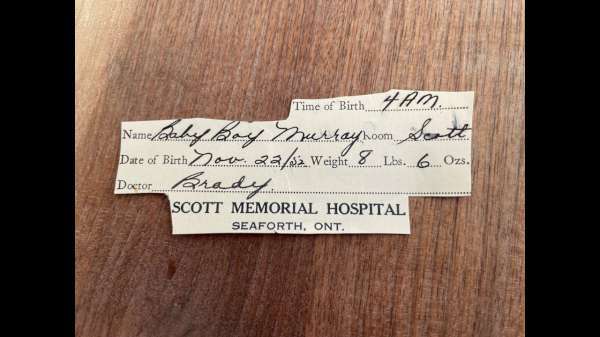 Time of Birth 4 A.M.
Name Baby Boy Murray Room Scott
Date of Birth Nov. 22/52 Weight 8 Lbs. 6 Ozs.
Doctor Brady.
SCOTT MEMORIAL HOSPITAL
SEAFORTH, ONT.